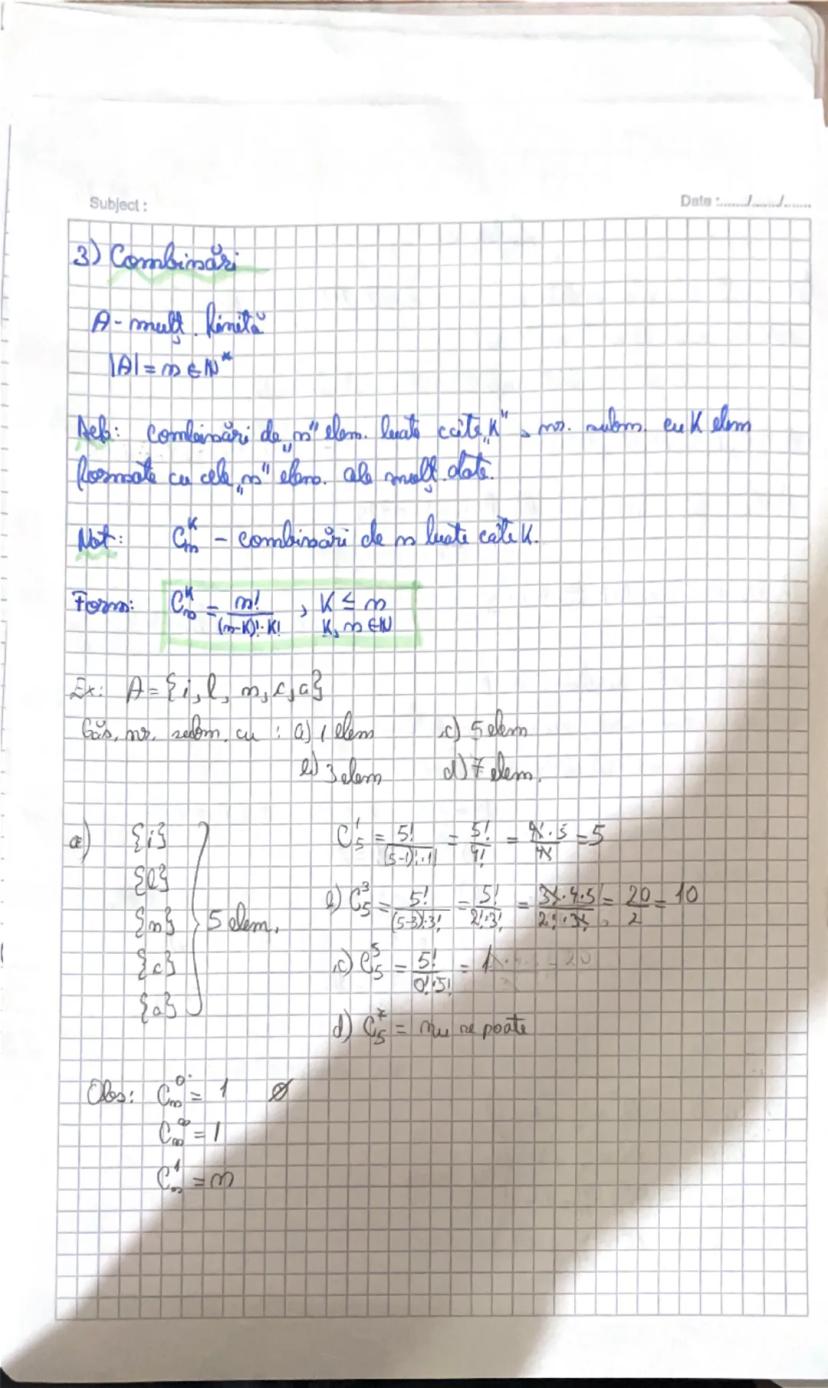 Subject :
Date :....../....../......
3) Combinări
A - mulţ. finită
|A| = n ∈ ℕ*
Def: combinări de „n" elem. luate câte „k" , nr. subm. cu K elem
formate cu cele „n" elem. ale mulţ. date.
Not: C_n^K - combinări de n luate câte K.
Form: C_n^K = n!/((n-K)!·K!) , K ≤ n
K, n ∈ ℕ
Ex: A = {i, l, n, c, a}
Găs. nr. subm. cu : a) 1 elem c) 5 elem
b) 3 elem d) 7 elem.
a) {i} C_5^1 = 5!/((5-1)!·1!) = 5!/4! = 4!·5/4! = 5
{l}
{n} 5 elem. b) C_5^3 = 5!/((5-3)!·3!) = 5!/(2!·3!) = 3!·4·5/(2!·3!) = 20/2 = 10
{c} c) C_5^5 = 5!/(0!·5!) = 1
{a}
d) C_5^7 = nu se poate
Obs: C_n^0 = 1 ∅
C_n^n = 1
C_n^1 = n